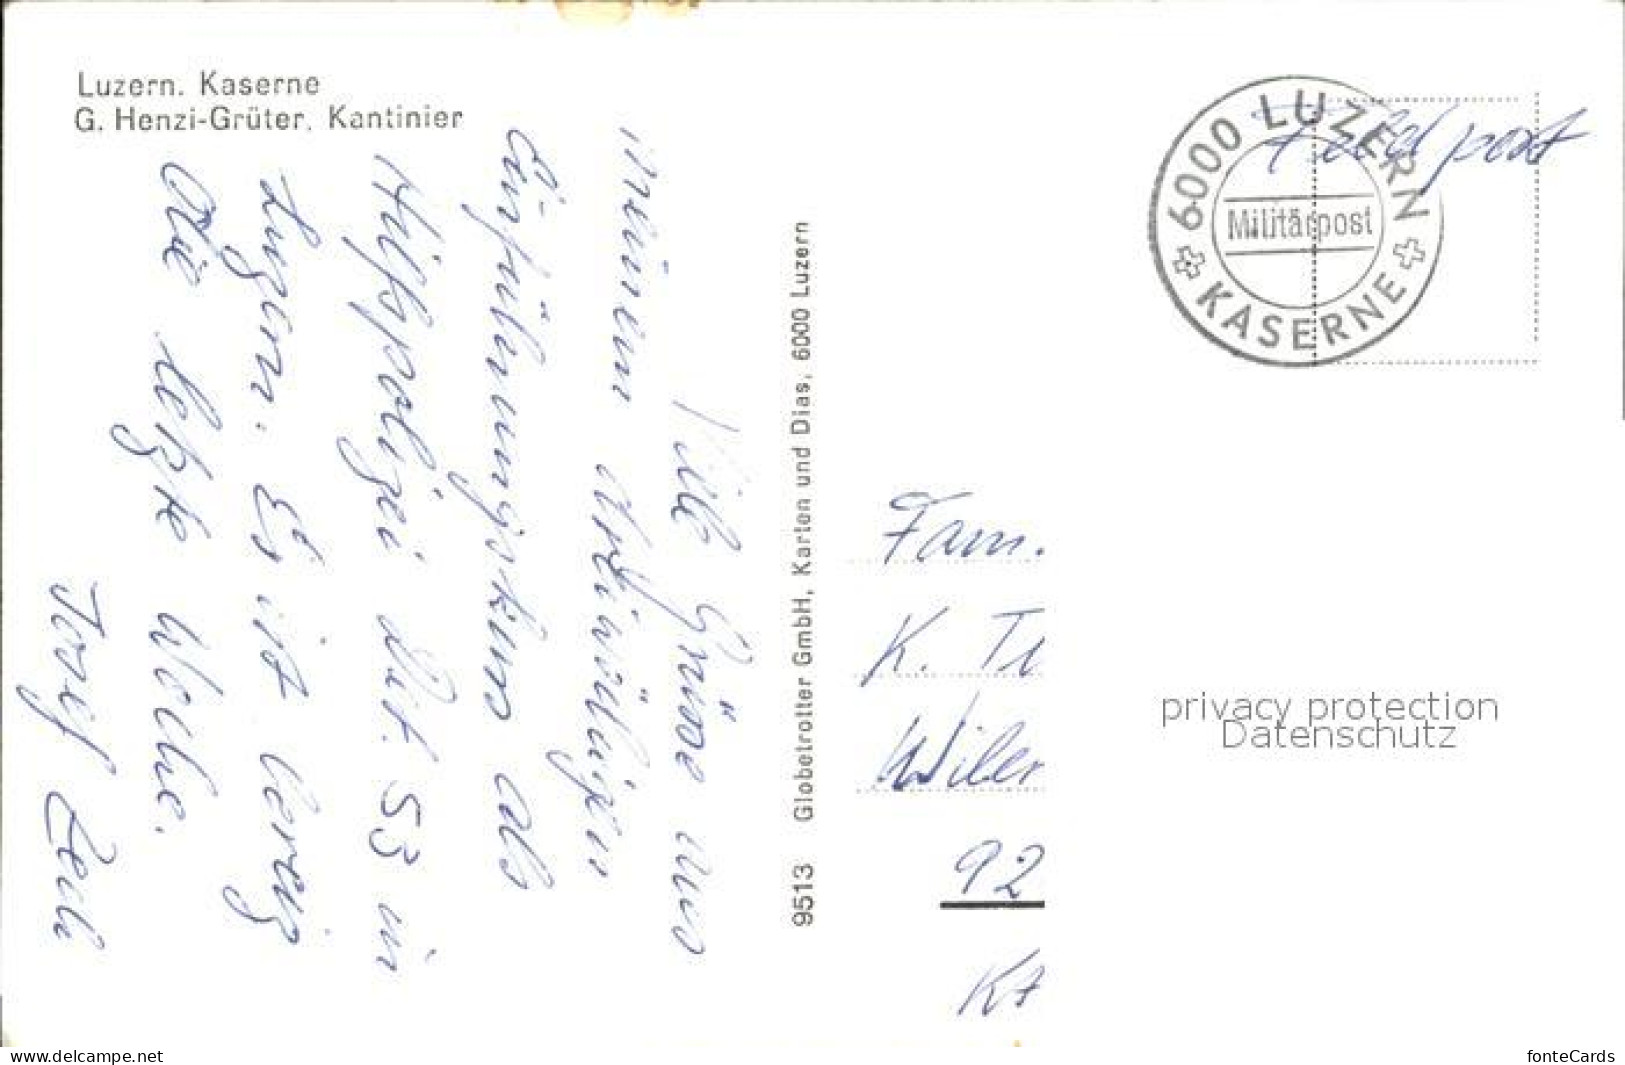 Luzern. Kaserne
G. Henzi-Grüter, Kantinier
Viele Grüsse aus
meinem dreiwöchigen
Einführungskurs als
Hilfspolizei Det. 53 in
Luzern. Es ist bereits
die letzte Woche.
Josef
9513 Globetrotter GmbH, Karten und Dias, 6000 Luzern
6000 LUZERN
Militärpost
KASERNE
Feldpost
Fam.
K.
92
privacy protection
Datenschutz
www.delcampe.net
fonteCards